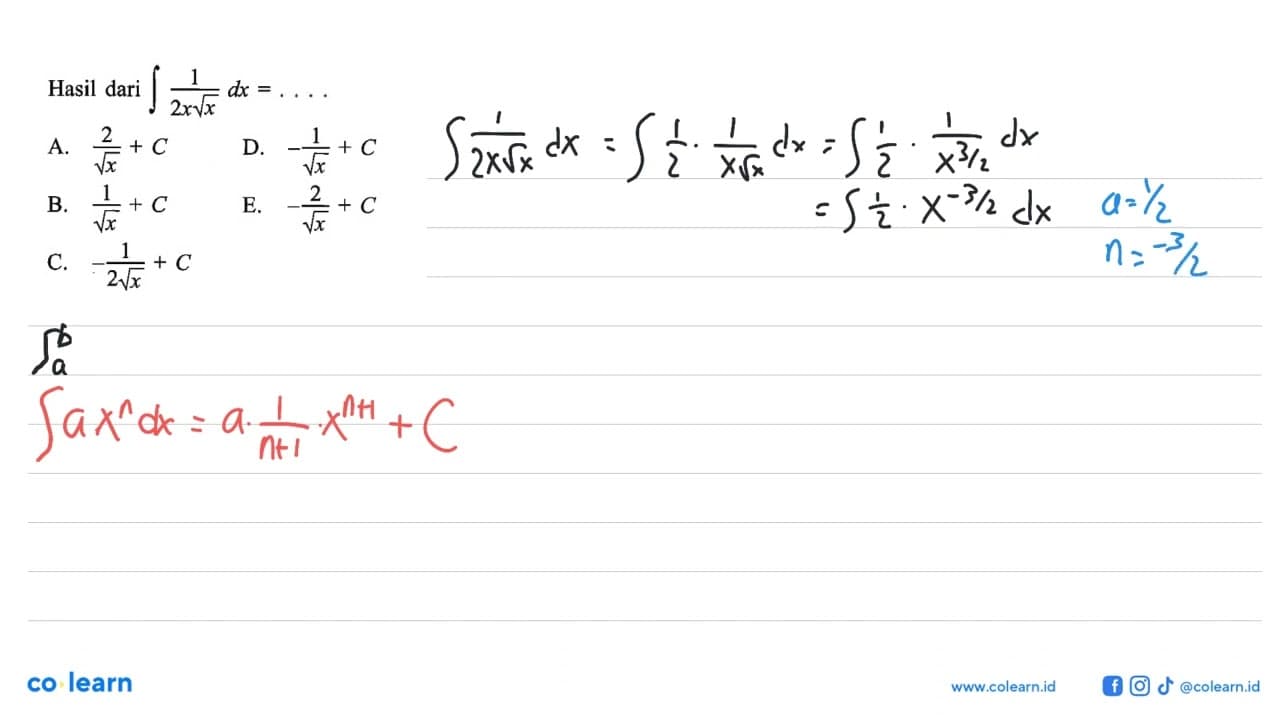 Hasil dari ∫ 1/(2x√x) dx = . . . .
A. 2/√x + C
D. -1/√x + C
B. 1/√x + C
E. -2/√x + C
C. -1/(2√x) + C
∫ 1/(2x√x) dx = ∫ 1/2 · 1/(x√x) dx = ∫ 1/2 · 1/x^(3/2) dx
= ∫ 1/2 · x^(-3/2) dx
a = 1/2
n = -3/2
∫_a^b
∫ a x^n dx = a · 1/(n+1) · x^(n+1) + C
co learn
www.colearn.id
@colearn.id